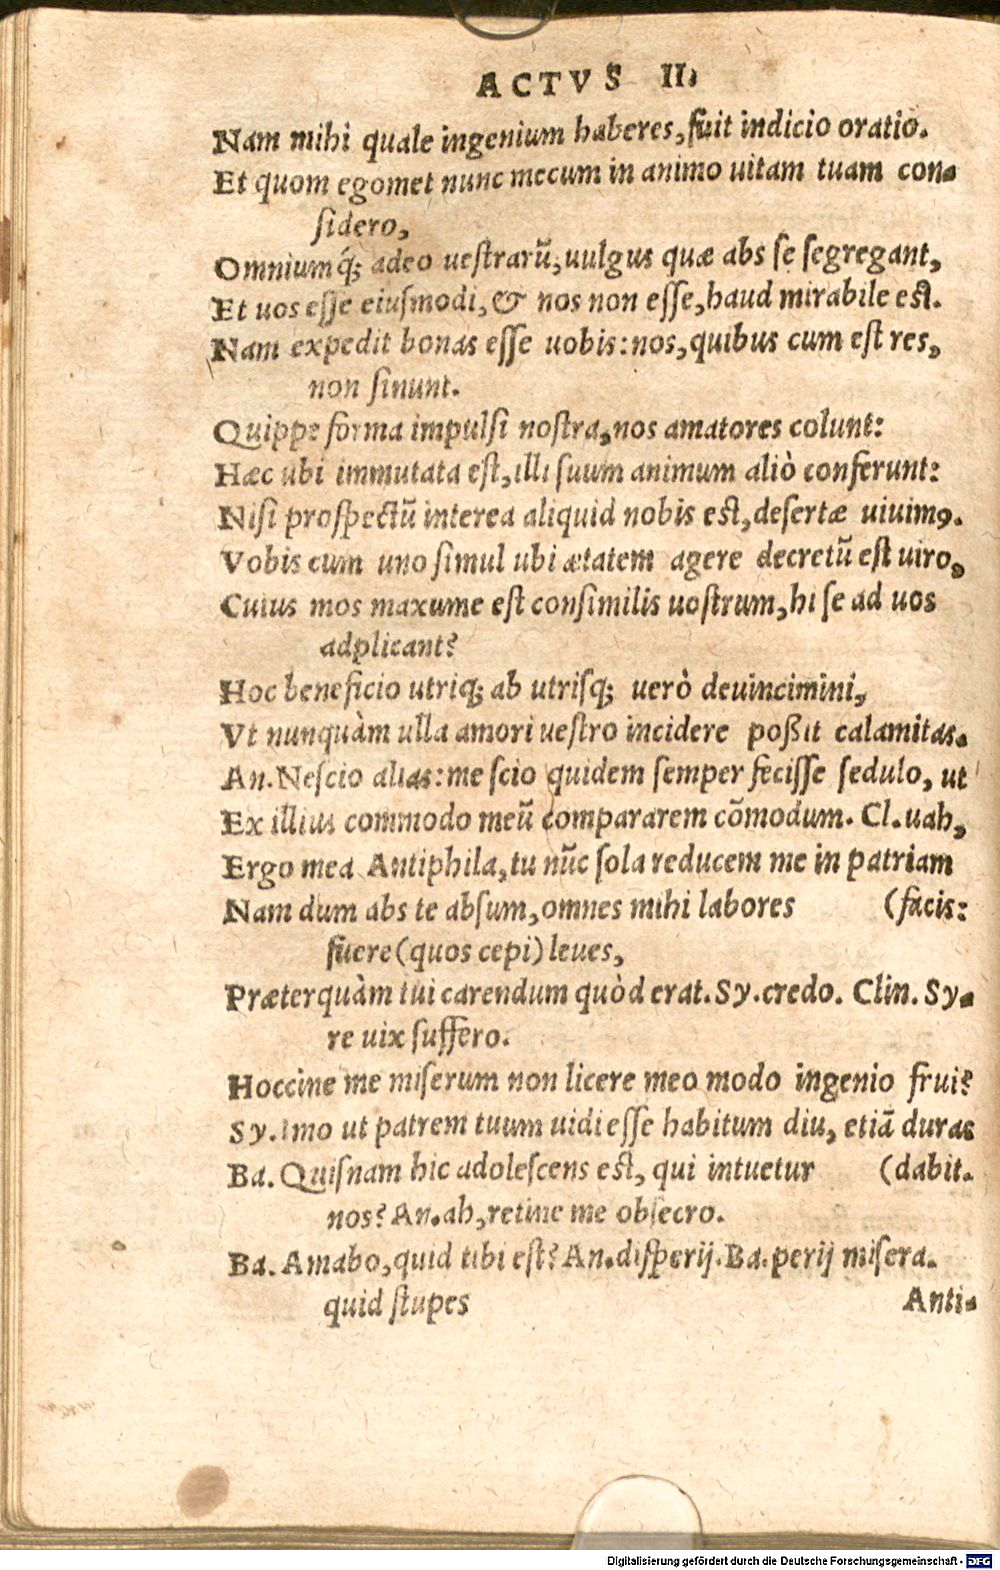 ACTVS II.
Nam mihi quale ingenium haberes, fuit indicio oratio.
Et quom egomet nunc mecum in animo uitam tuam con-
sidero,
Omniumq́; adeo uestrarũ, uulgus quæ abs se segregant,
Et uos esse eiusmodi, & nos non esse, haud mirabile est.
Nam expedit bonas esse uobis: nos, quibus cum est res,
non sinunt.
Quippe forma impulsi nostra, nos amatores colunt:
Hæc ubi immutata est, illi suum animum aliò conferunt:
Nisi prospectũ interea aliquid nobis est, desertæ uiuimꝰ.
Vobis cum uno simul ubi ætatem agere decretũ est uiro,
Cuius mos maxume est consimilis uostrum, hi se ad uos
adplicant?
Hoc beneficio utriq; ab utrisq; uerò deuincimini,
Vt nunquàm ulla amori uestro incidere poßit calamitas.
An. Nescio alias: me scio quidem semper fecisse sedulo, ut
Ex illius commodo meũ compararem cõmodum. Cl. uah,
Ergo mea Antiphila, tu nũc sola reducem me in patriam
Nam dum abs te absum, omnes mihi labores (facis:
fuere (quos cepi) leues,
Præterquàm tui carendum quòd erat. Sy. credo. Clin. Sy-
re uix suffero.
Hoccine me miserum non licere meo modo ingenio frui?
Sy. Imo ut patrem tuum uidi esse habitum diu, etiã duras
Ba. Quisnam hic adolescens est, qui intuetur (dabit.
nos? An. ah, retine me obsecro.
Ba. Amabo, quid tibi est? An. disperij. Ba. perij misera.
quid stupes Anti-
Digitalisierung gefördert durch die Deutsche Forschungsgemeinschaft - DFG